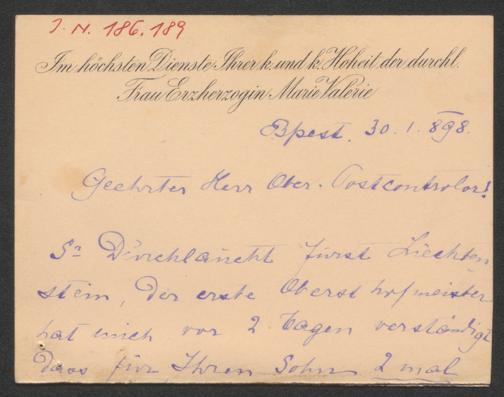 J.N. 186.189
Im höchsten Dienste Ihrer k. und k. Hoheit der durchl.
Frau Erzherzogin Marie Valerie
Bpest. 30.1.898.
Geehrter Herr Ober-Postcontrolor!
Sr Durchlaucht Fürst Liechten
stein, der erste Obersthofmeister
hat mich vor 2 Tagen verständigt
dass für Ihren Sohn 2 mal